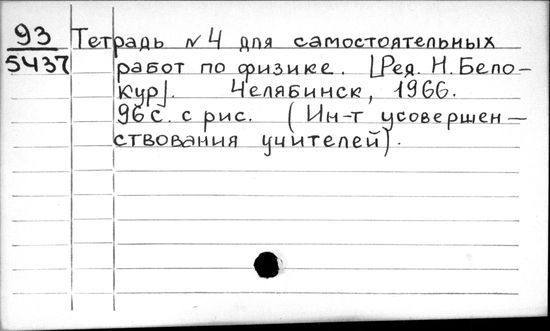 93
5437
Тетрадь № 4 для самостоятельных
работ по физике. [Ред. Н. Бело-
кур]. Челябинск, 1966.
96 с. с рис. (Ин-т усовершен-
ствования учителей).